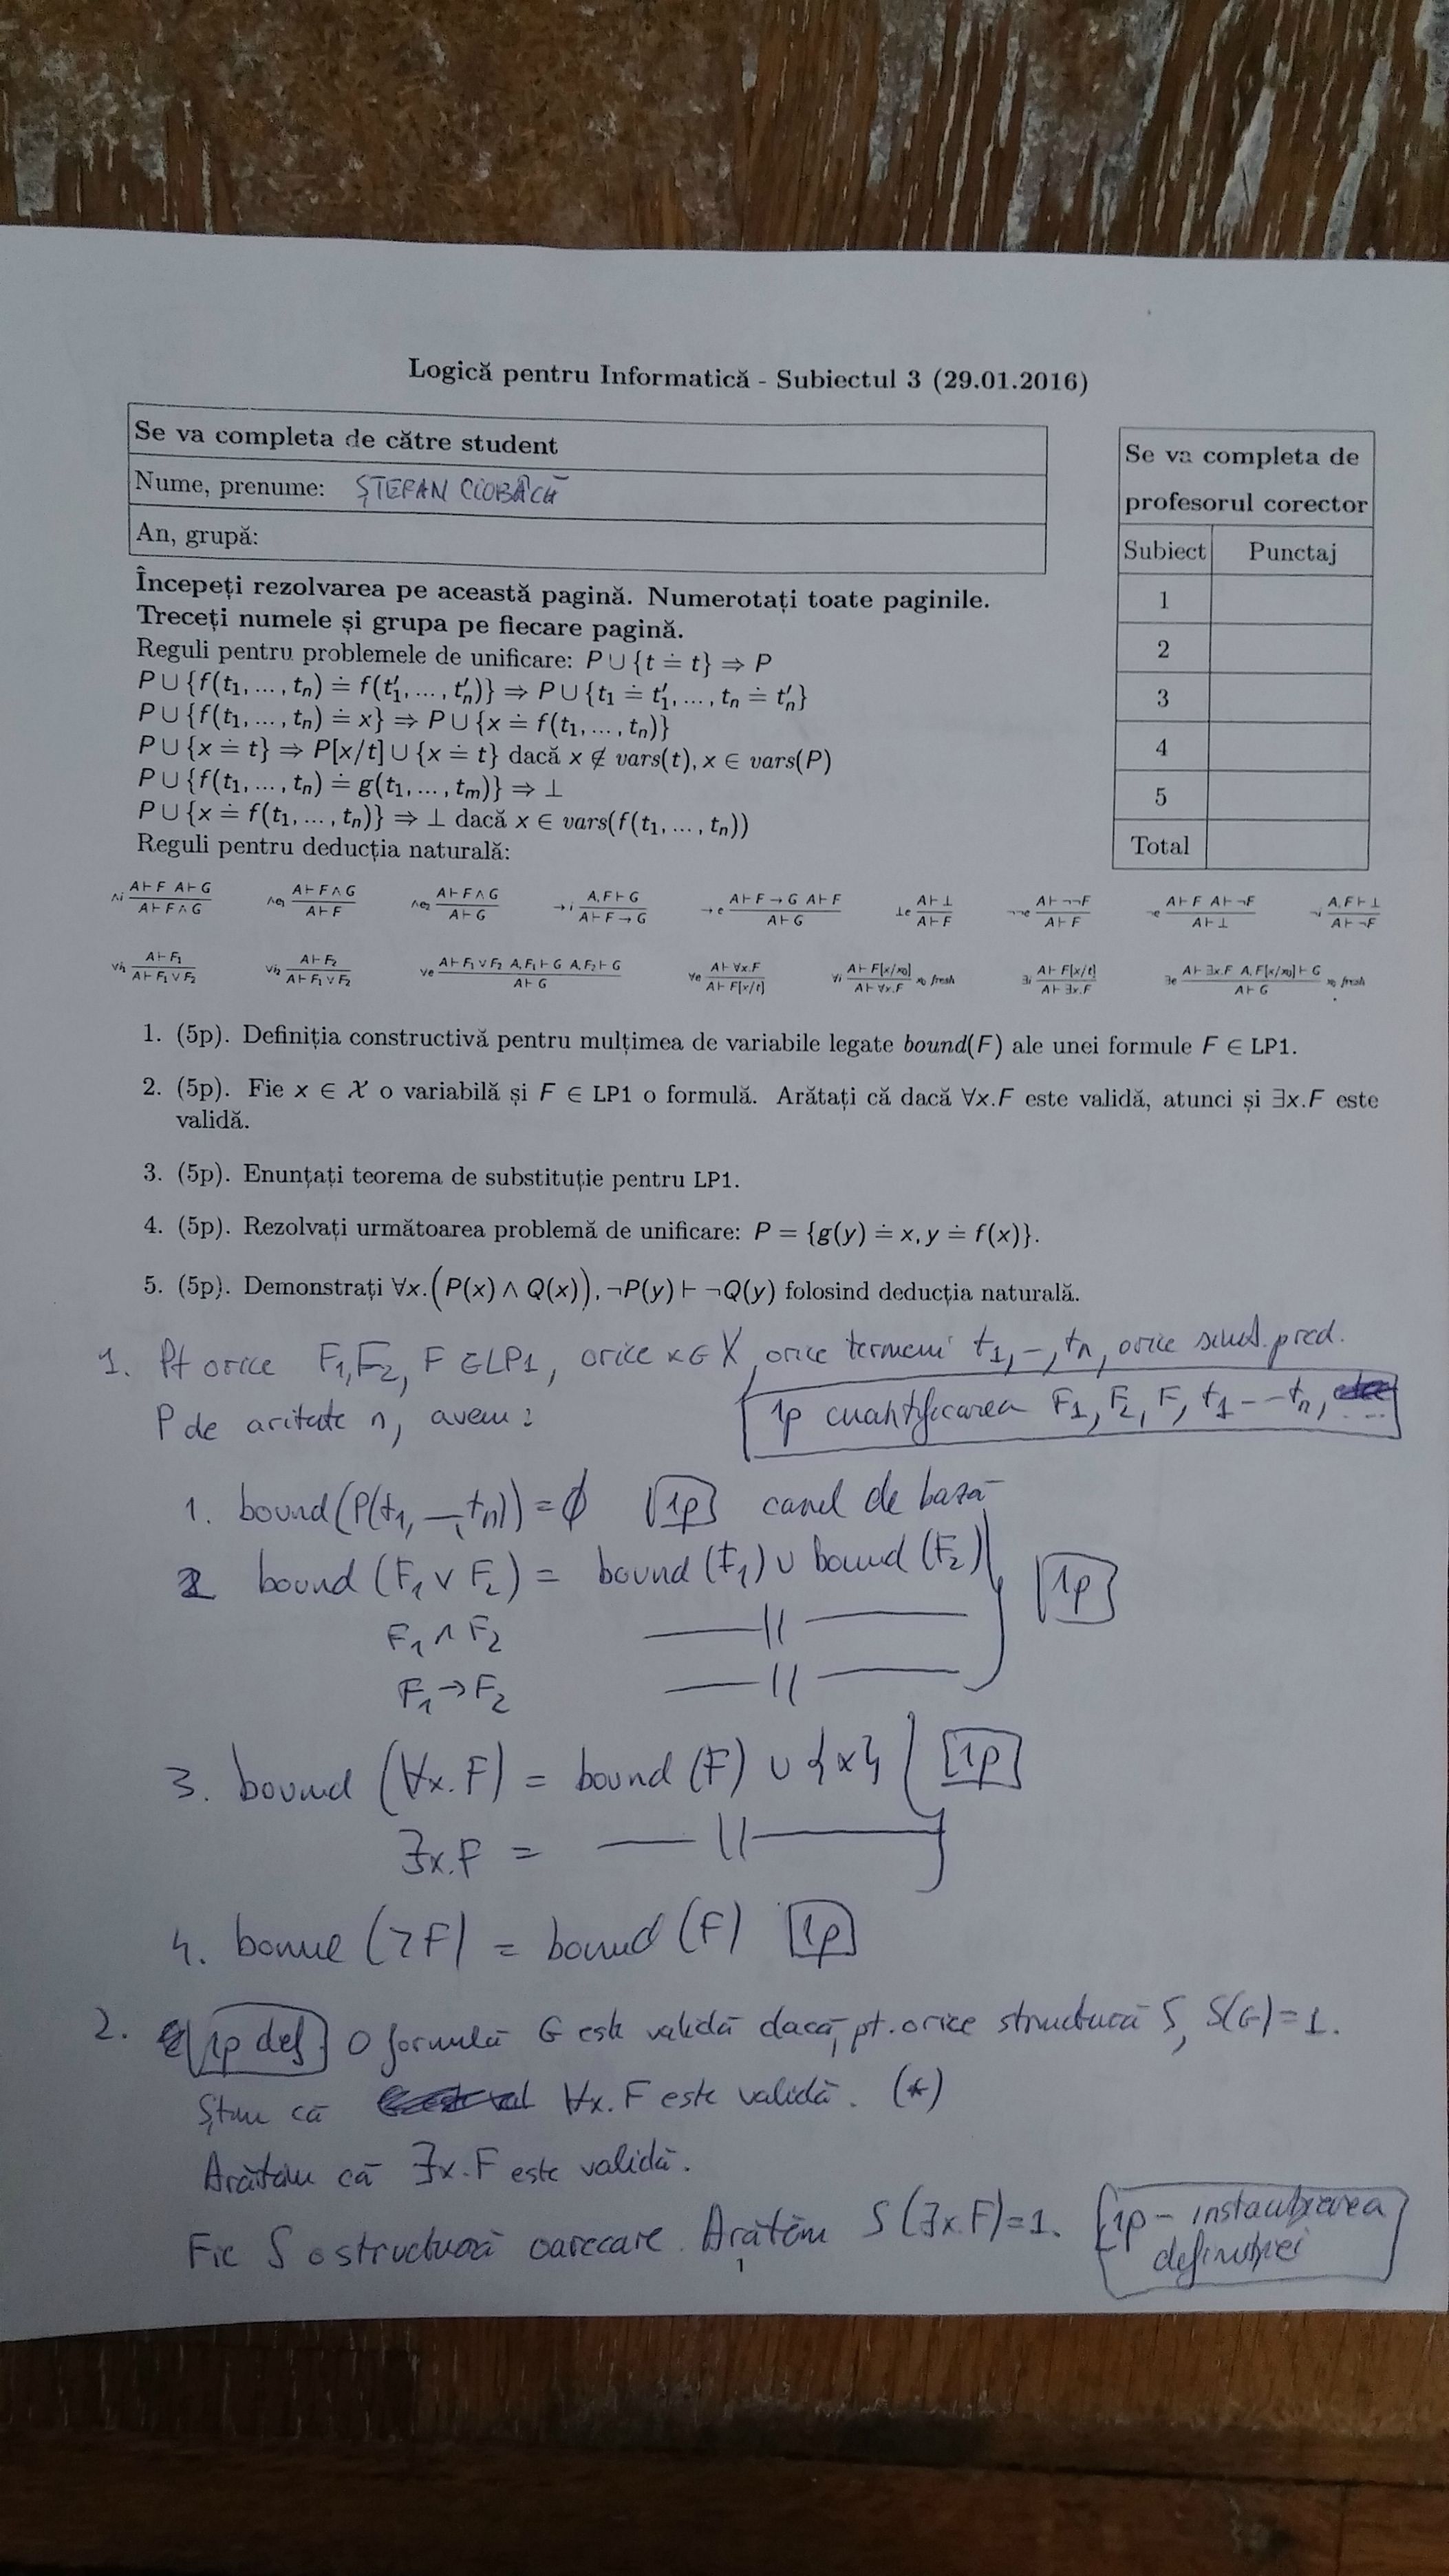 Logică pentru Informatică - Subiectul 3 (29.01.2016)
Se va completa de către student
Nume, prenume: ȘTEFAN CIOBÂCĂ
An, grupă:
Se va completa de
profesorul corector
Subiect Punctaj
1
2
3
4
5
Total
Începeți rezolvarea pe această pagină. Numerotați toate paginile.
Treceți numele și grupa pe fiecare pagină.
Reguli pentru problemele de unificare: P ∪ {t ≐ t} ⇒ P
P ∪ {f(t₁, …, tₙ) ≐ f(t′₁, …, t′ₙ)} ⇒ P ∪ {t₁ ≐ t′₁, …, tₙ ≐ t′ₙ}
P ∪ {f(t₁, …, tₙ) ≐ x} ⇒ P ∪ {x ≐ f(t₁, …, tₙ)}
P ∪ {x ≐ t} ⇒ P[x/t] ∪ {x ≐ t} dacă x ∉ vars(t), x ∈ vars(P)
P ∪ {f(t₁, …, tₙ) ≐ g(t₁, …, tₘ)} ⇒ ⊥
P ∪ {x ≐ f(t₁, …, tₙ)} ⇒ ⊥ dacă x ∈ vars(f(t₁, …, tₙ))
Reguli pentru deducția naturală:
∧i A⊢F A⊢G / A⊢F∧G ∧e₁ A⊢F∧G / A⊢F ∧e₂ A⊢F∧G / A⊢G →i A,F⊢G / A⊢F→G →e A⊢F→G A⊢F / A⊢G ⊥e A⊢⊥ / A⊢F ¬¬e A⊢¬¬F / A⊢F ¬e A⊢F A⊢¬F / A⊢⊥ ¬i A,F⊢⊥ / A⊢¬F
∨i₁ A⊢F₁ / A⊢F₁∨F₂ ∨i₂ A⊢F₂ / A⊢F₁∨F₂ ∨e A⊢F₁∨F₂ A,F₁⊢G A,F₂⊢G / A⊢G ∀e A⊢∀x.F / A⊢F[x/t] ∀i A⊢F[x/x₀] / A⊢∀x.F x₀ fresh ∃i A⊢F[x/t] / A⊢∃x.F ∃e A⊢∃x.F A,F[x/x₀]⊢G / A⊢G x₀ fresh
1. (5p). Definiția constructivă pentru mulțimea de variabile legate bound(F) ale unei formule F ∈ LP1.
2. (5p). Fie x ∈ 𝒳 o variabilă și F ∈ LP1 o formulă. Arătați că dacă ∀x.F este validă, atunci și ∃x.F este
validă.
3. (5p). Enunțați teorema de substituție pentru LP1.
4. (5p). Rezolvați următoarea problemă de unificare: P = {g(y) ≐ x, y ≐ f(x)}.
5. (5p). Demonstrați ∀x.(P(x) ∧ Q(x)), ¬P(y) ⊢ ¬Q(y) folosind deducția naturală.
1. Pt orice F₁, F₂, F ∈ LP1, orice x ∈ X, orice termeni t₁, –, tₙ, orice simb. pred.
P de aritate n, avem:
1p cuantificarea F₁, F₂, F, t₁ - - tₙ, ...
1. bound(P(t₁, —, tₙ)) = ∅ 1p cazul de bază
2 bound (F₁ ∨ F₂) = bound (F₁) ∪ bound (F₂)
F₁ ∧ F₂ —||— 1p
F₁ → F₂ —||—
3. bound (∀x. F) = bound (F) ∪ {x} 1p
∃x.F = —||—
4. bound (¬F) = bound (F) 1p
2. 1p def O formulă G este validă dacă, pt. orice structură S, S(G)=1.
Știm că ∀x. F este validă. (*)
Arătăm că ∃x.F este validă.
Fie S o structură oarecare. Arătăm S(∃x.F)=1. 1p - instanțierea
definiției
1